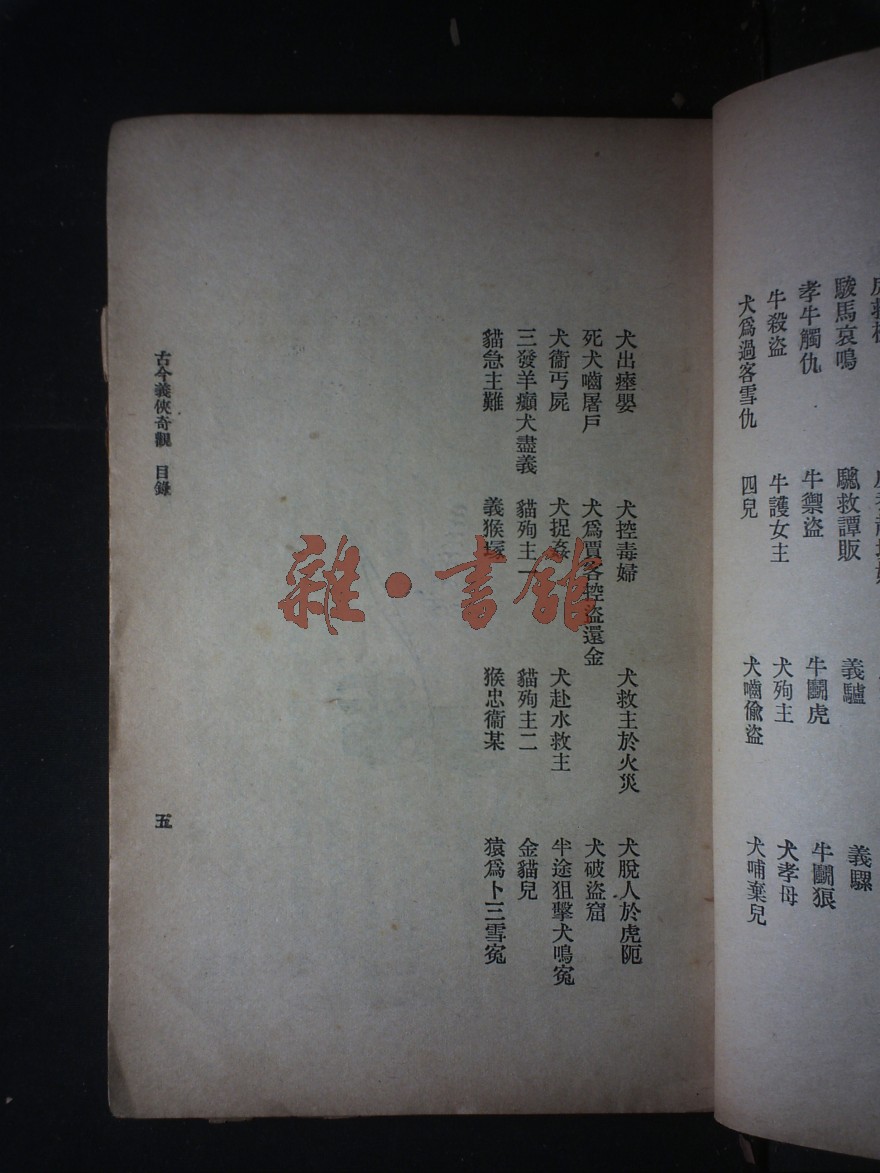 駿馬哀鳴 驄救譚販 義驢 義騾
孝牛觸仇 牛禦盜 牛鬭虎 牛鬭狼
牛殺盜 牛護女主 犬殉主 犬孝母
犬爲過客雪仇 四兒 犬嚙偸盜 犬哺棄兒
犬出瘞嬰 犬控毒婦 犬救主於火災 犬脫人於虎阨
死犬嚙屠戶 犬爲賈客控盜還金 犬破盜窟
犬衞丐屍 犬捉姦 犬赴水救主 半途狙擊犬鳴寃
三發羊癲犬盡義 貓殉主一 貓殉主二 金貓兒
貓急主難 義猴塚 猴忠衞某 猿爲卜三雪寃
古今義俠奇觀 目錄 五
雜·書館